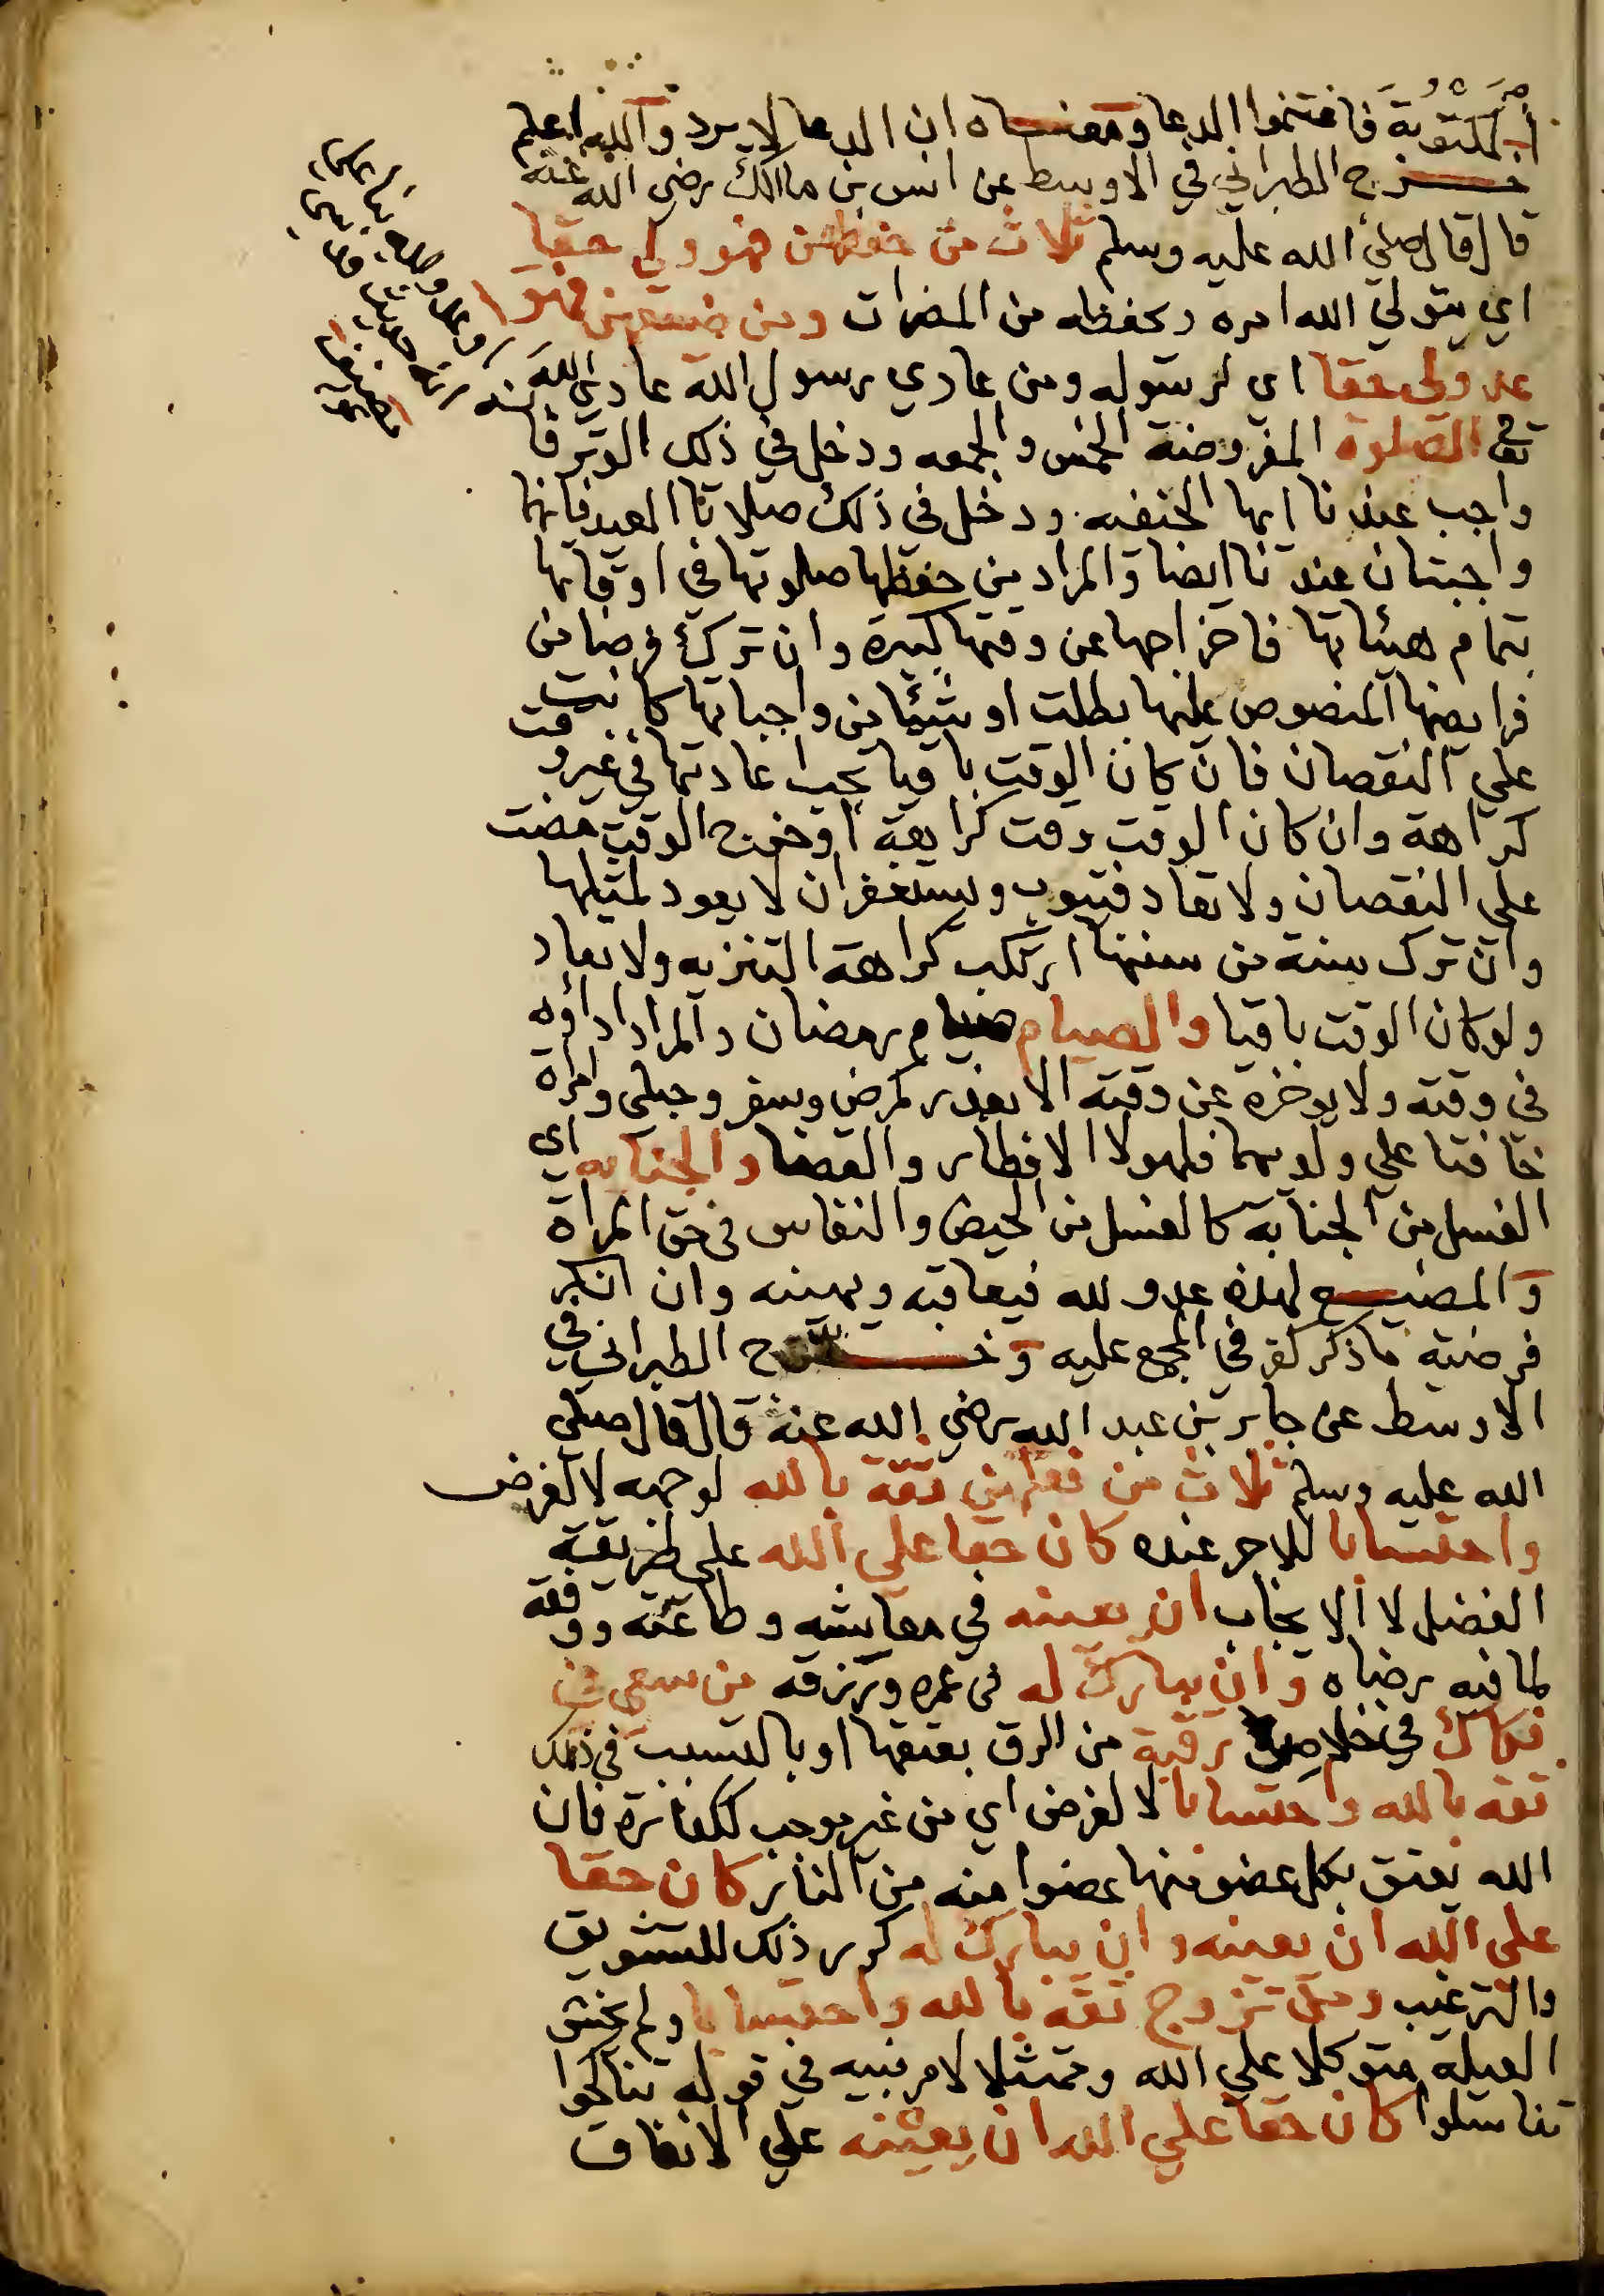 المكتوبة فاغتنموا الدعا ومعناه ان الدعا لا يرد والله اعلم
خرج الطبراني في الاوسط عن انس بن مالك رضى الله عنه
قال قال صلى الله عليه وسلم ثلاث من حفظهن فهو ولي حقا
اي يتولي الله امره ويحفظه من المضرات ومن ضيعهن فهو
عدوي حقا اي لرسوله ومن عادي رسول الله عادي الله
الصلوة المفروضة الخمس والجمعه ودخل في ذلك الوتر فانه
واجب عندنا ايها الحنفيه ودخل في ذلك صلاتا العيد فانها
واجبتان عندنا ايضا والمراد من حفظها صلوتها في اوقاتها
بتمام هيئاتها فاخراجها عن وقتها كبيرة وان ترك فرضا من
فرايضها المنصوص عليها بطلت او شيئا من واجباتها كانت
علي النقصان فان كان الوقت باقيا يجب اعادتها في غير وقت
كراهة وان كان الوقت وقت كراهة او خرج الوقت مضت
على النقصان ولا تعاد فيتوب ويستغفر ان لا يعود لمثلها
وان ترك سنة من سننها ارتكب كراهة التنزيه ولا تعاد
ولو كان الوقت باقيا والصيام صيام رمضان والمراد اداؤه
في وقته ولا يوخره عن وقته الا بعذر كمرض وسفر وحبلي وامراة
خافتا علي ولديهما فلهولا الافطار والقضا والجنابه اي
الغسل من الجنابة كالغسل من الحيض والنفاس في حق المراة
والمضيع لهذه عدو لله فيعاقبه ويهينه وان انكر
فرضية ما ذكر كفر في المجمع عليه وخرج الطبراني في
الاوسط عن جابر بن عبد الله رضي الله عنه قال قال صلى
الله عليه وسلم ثلاث من فعلهن ثقة بالله لوجهه لا لغرض
واحتسابا للاجر عنده كان حقا علي الله على طريقة
الفضل لا الايجاب ان يعينه في معايشه وطاعته ووفقه
لما فيه رضاه وان يبارك له في عمره ورزقه من سعى في
فكاك في خلاص رقبة من الرق بعتقها او بالتسبب في ذلك
ثقة بالله واحتسابا لا لغرض اي من غير موجب ككفارة فان
الله يعتق بكل عضو منها عضوا منه من النار كان حقا
على الله ان يعينه وان يبارك له كرر ذلك للتشويق
والترغيب ومن تزوج ثقة بالله واحتسابا ولم يخش
العيلة متوكلا علي الله وممتثلا لامر نبيه في قوله تناكحوا
تناسلوا كان حقا علي الله ان يعينه علي الانفاق